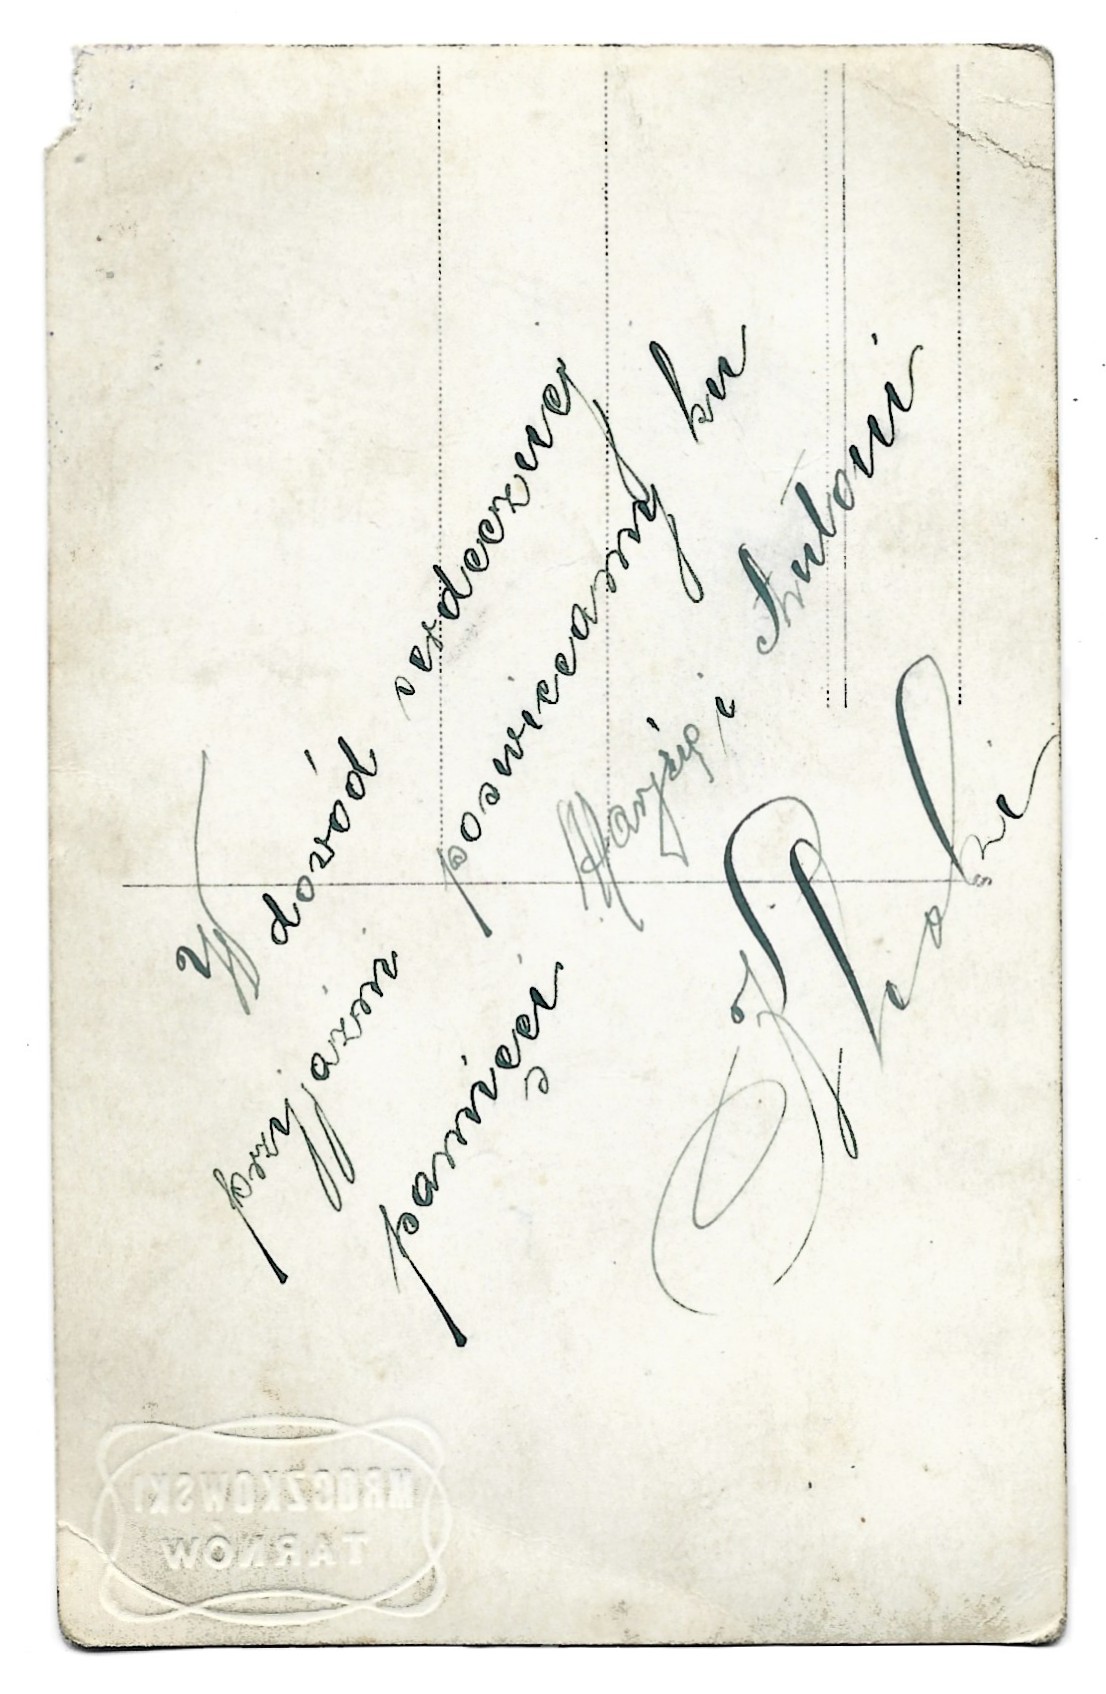 W dowód serdecznej
przyjaźni poswięcamy ku
pamięci Maryśię i Antoni
MROCZKOWSKI
TARNÓW